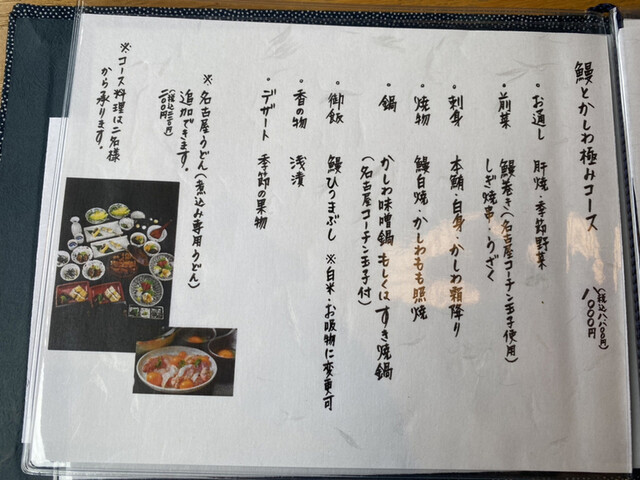 鰻とかしわ極みコース
八〇〇〇円
(税込八八〇〇円)
・お通し 肝焼・季節野菜
・前菜 鰻巻き(名古屋コーチン玉子使用)
しぎ焼串・うざく
・刺身 本鮪・白身・かしわ霜降り
・焼物 鰻白焼・かしわもも照焼
・鍋 かしわ味噌鍋 もしくは すき焼鍋
(名古屋コーチン玉子付)
・御飯 鰻ひつまぶし ※白米・お吸物に変更可
・香の物 浅漬
・デザート 季節の果物
※名古屋うどん(煮込み専用うどん)
追加できます。
二〇〇円
(税込二二〇円)
※コース料理は二名様
から承ります。